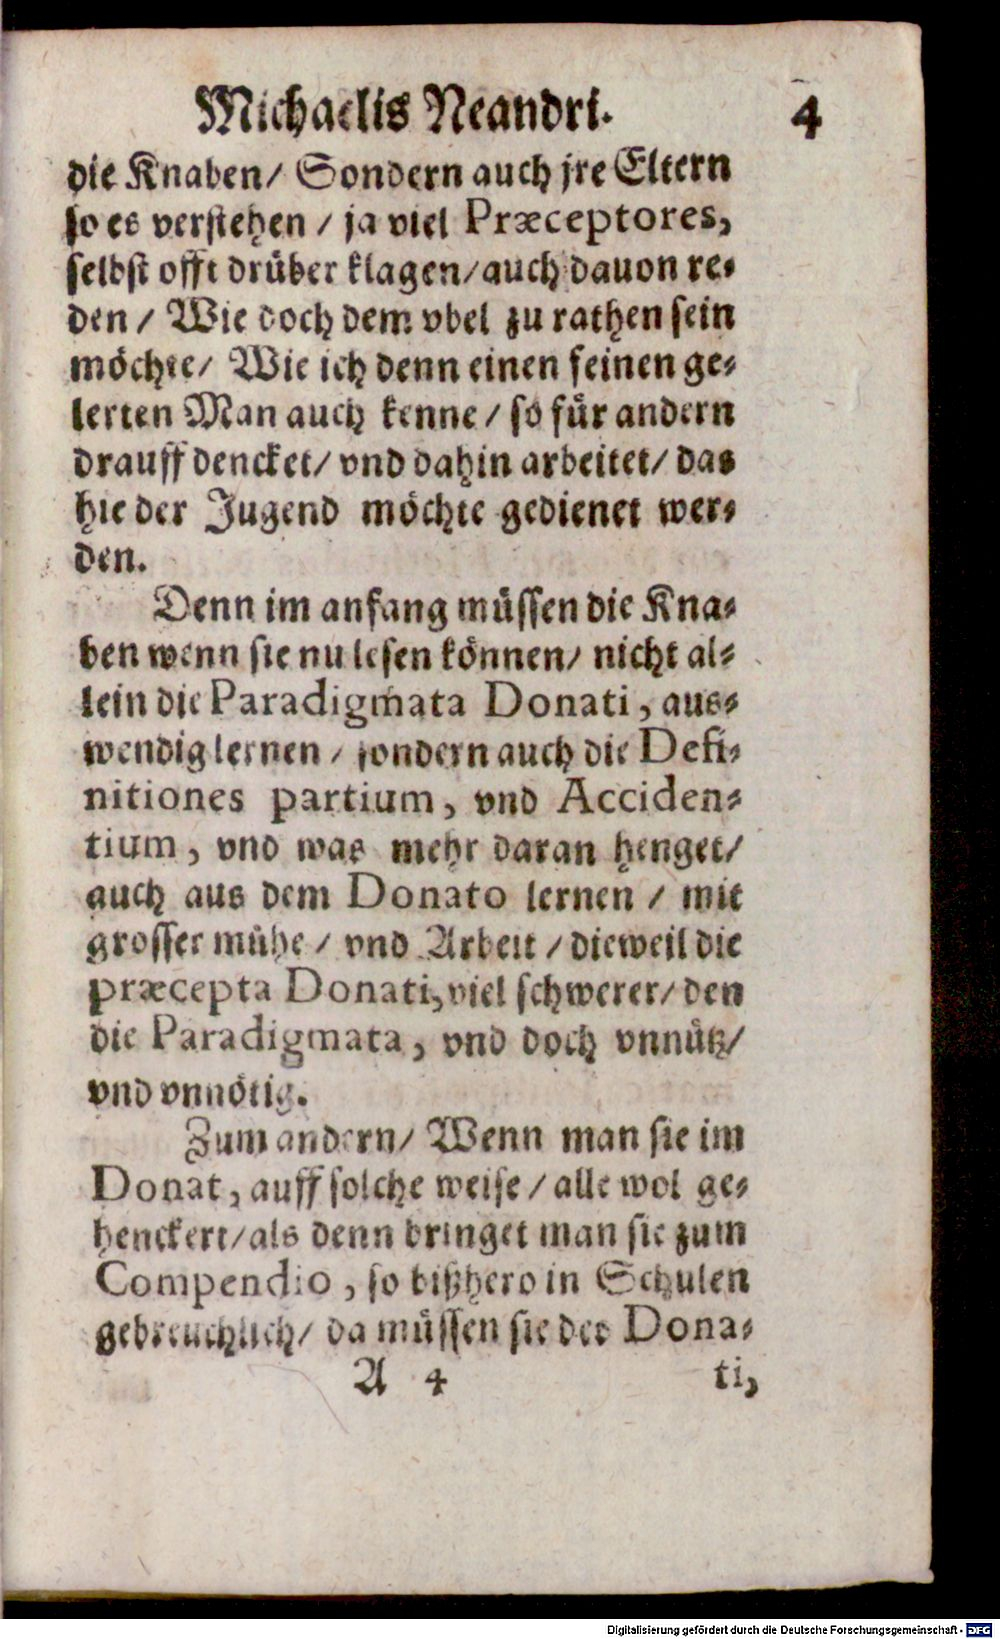 Michaelis Neandri. 4
die Knaben/ Sondern auch jre Eltern
so es verstehen / ja viel Præceptores,
selbst offt drüber klagen/auch dauon re⸗
den / Wie doch dem vbel zu rathen sein
möchte/ Wie ich denn einen feinen ge⸗
lerten Man auch kenne / so für andern
drauff dencket/ vnd dahin arbeitet/ das
hie der Jugend möchte gedienet wer⸗
den.
Denn im anfang müssen die Kna⸗
ben wenn sie nu lesen können/ nicht al⸗
lein die Paradigmata Donati, aus⸗
wendig lernen / sondern auch die Defi⸗
nitiones partium, vnd Acciden⸗
tium, vnd was mehr daran henget/
auch aus dem Donato lernen / mit
grosser mühe / vnd Arbeit / dieweil die
præcepta Donati, viel schwerer/ den
die Paradigmata, vnd doch vnnütz/
vnd vnnötig.
Zum andern/ Wenn man sie im
Donat, auff solche weise / alle wol ge⸗
henckert/als denn bringet man sie zum
Compendio, so bißhero in Schulen
gebreuchlich/ da müssen sie der Dona⸗
A 4 ti,
Digitalisierung gefördert durch die Deutsche Forschungsgemeinschaft - DFG